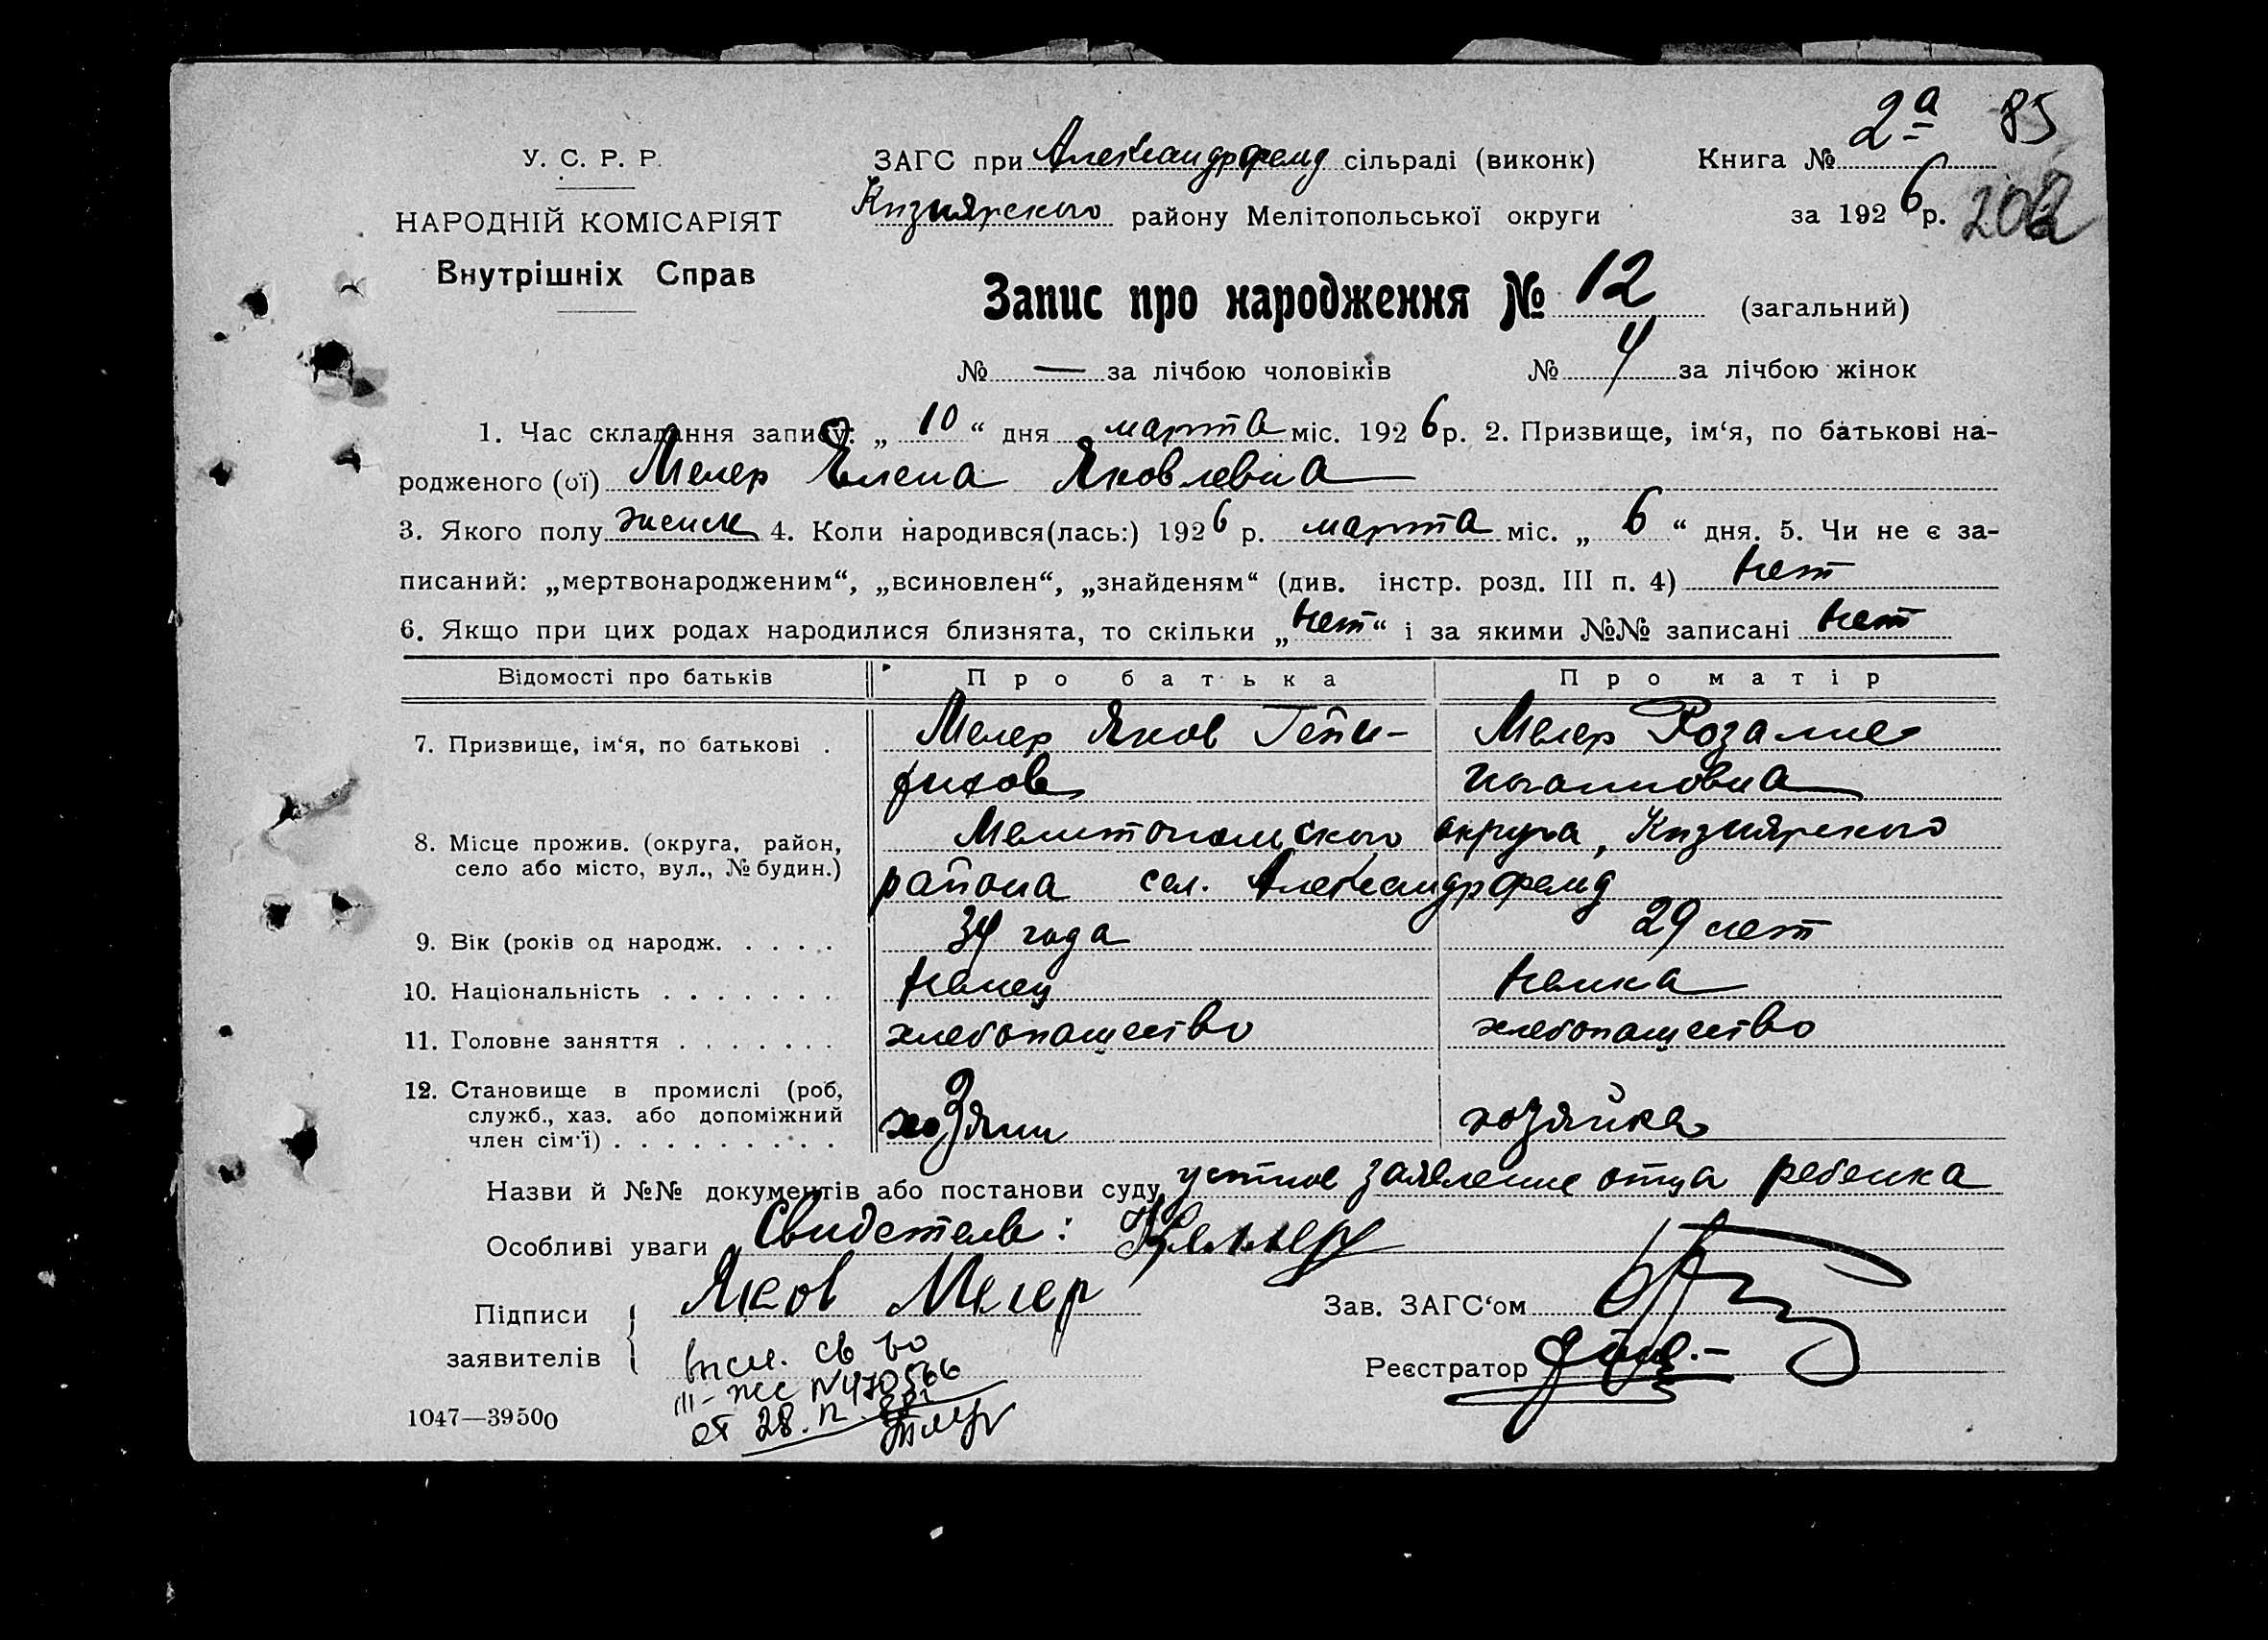 2а 85
У. С. Р. Р. ЗАГС при Александрфельд сільраді (виконк) Книга №
НАРОДНІЙ КОМІСАРІЯТ Кизиярского району Мелітопольської округи за 1926 р. 202
Внутрішніх Справ
Запис про народження № 12 (загальний)
№ — за лічбою чоловіків № 4 за лічбою жінок
1. Час складання запису: „ 10 “ дня марта міс. 1926 р. 2. Призвище, ім‘я, по батькові на-
родженого (ої) Мелер Елена Яковлевна
3. Якого полу женск 4. Коли народився(лась:) 1926 р. марта міс. „ 6 “ дня. 5. Чи не є за-
писаний: „мертвонародженим“, „всиновлен“, „знайденям“ (див. інстр. розд. III п. 4) нет
6. Якщо при цих родах народилися близнята, то скільки „нет“ і за якими №№ записані нет
Відомості про батьків Про батька Про матір
7. Призвище, ім‘я, по батькові . Мелер Яков Гейн- Мелер Розалие
рихов Иоганновна
8. Місце прожив. (округа, район, Мелитопольского округа, Кизиярского
село або місто, вул., № будин.) района сел. Александрфельд
9. Вік (років од народж. . . . . 34 года 29 лет
10. Національність . . . . . . . немец немка
11. Головне заняття . . . . . . . хлебопашество хлебопашество
12. Становище в промислі (роб,
служб., хаз. або допоміжний хозяин хозяйка
член сім‘ї) . . . . . . . . .
Назви й №№ документів або постанови суду устное заявление отца ребенка
Особливі уваги Свидетель:
Підписи Яков Мелер Зав. ЗАГС‘ом
заявителів высл. св во Реєстратор
III-жс №470566
1047—39500 от 28.